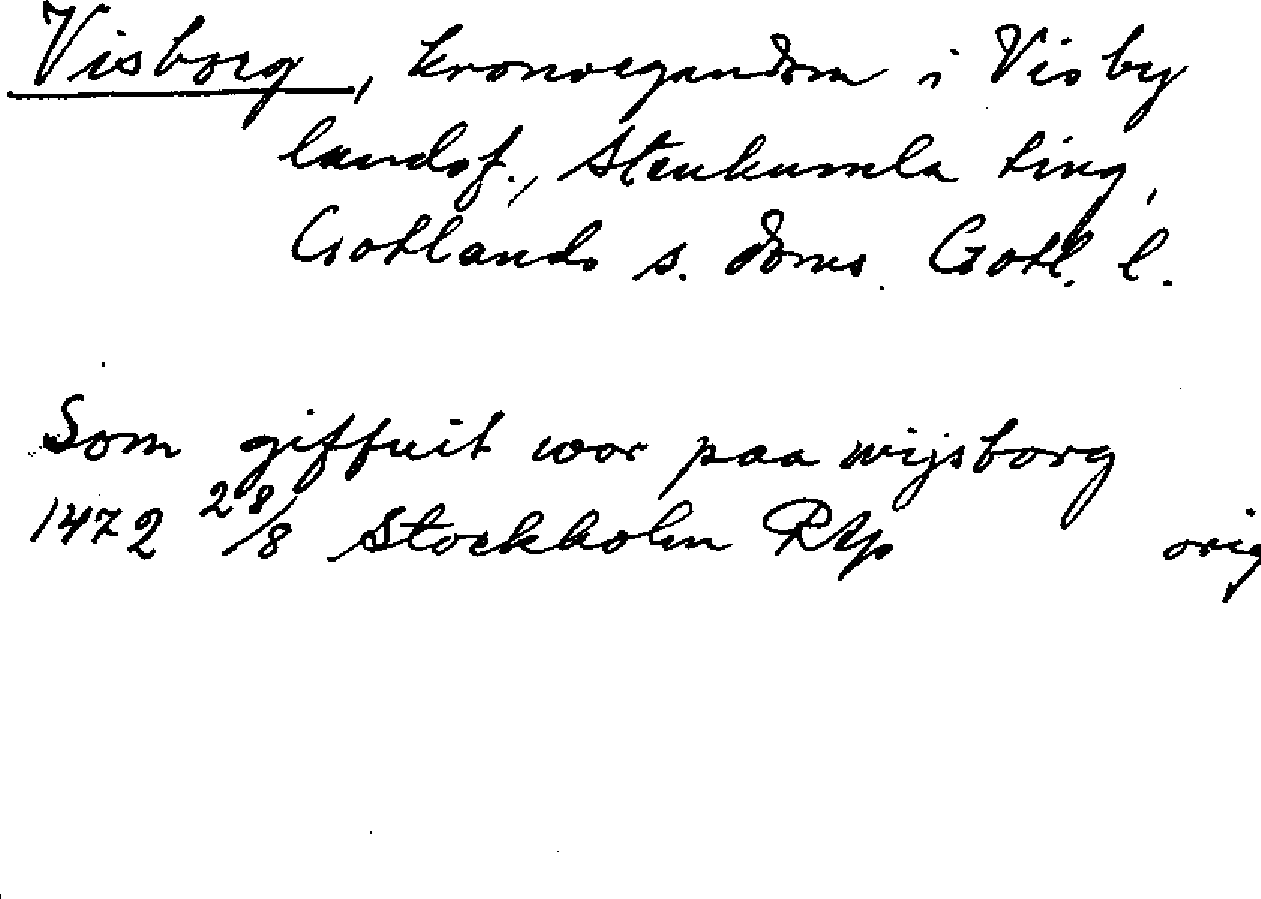 Visborg, kronoegendom i Visby
landsf., Stenkumla ting,
Gotlands s. doms. Gotl. l.
Som giffuit wor paa wijsborg
1472 28/8 Stockholm RAp orig